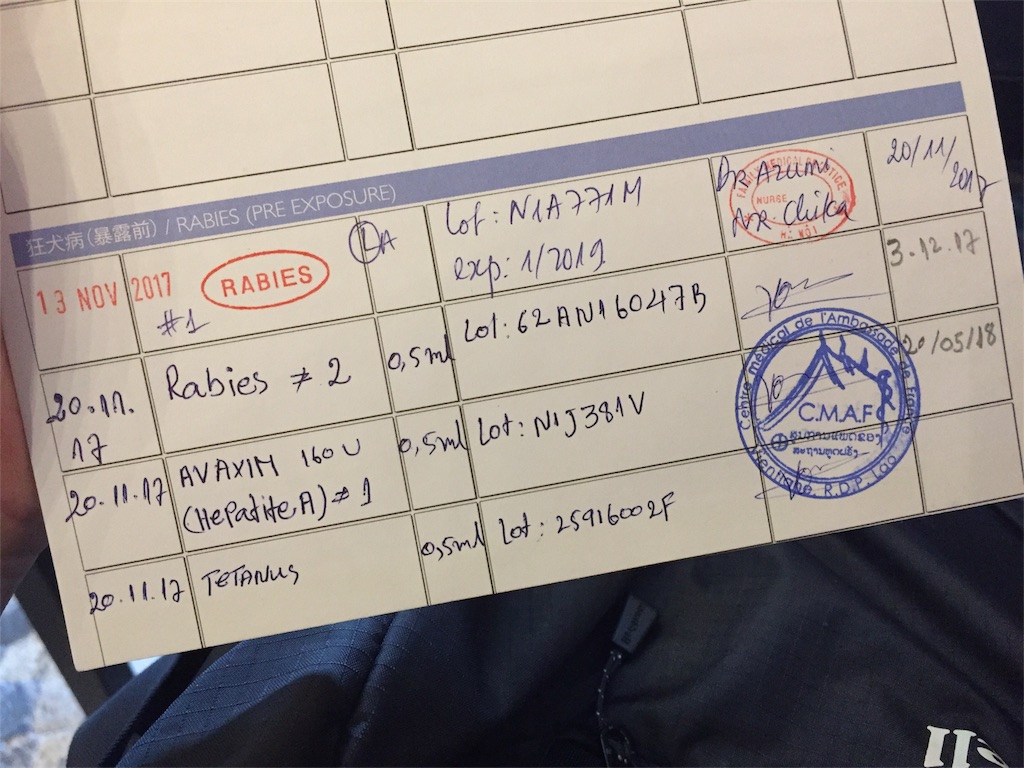 狂犬病(暴露前) / RABIES (PRE EXPOSURE)
13 NOV 2017 RABIES LA Lot: N1A771M DR. AZUMI 20/11/2017
#1 exp: 1/2019 NURSE Chika
HÀ NỘI
20.11.17 Rabies ≠ 2 0,5ml Lot: 62AN16047B 3.12.17
20.11.17 AVAXIM 160U 0,5ml Lot: N1J381V 20/05/18
(Hepatite A) ≠ 1
20.11.17 TETANUS 0,5ml Lot: 25916002F
Centre médical de l'Ambassade de France
C.M.A.F
Vientiane, R.D.P. Lao